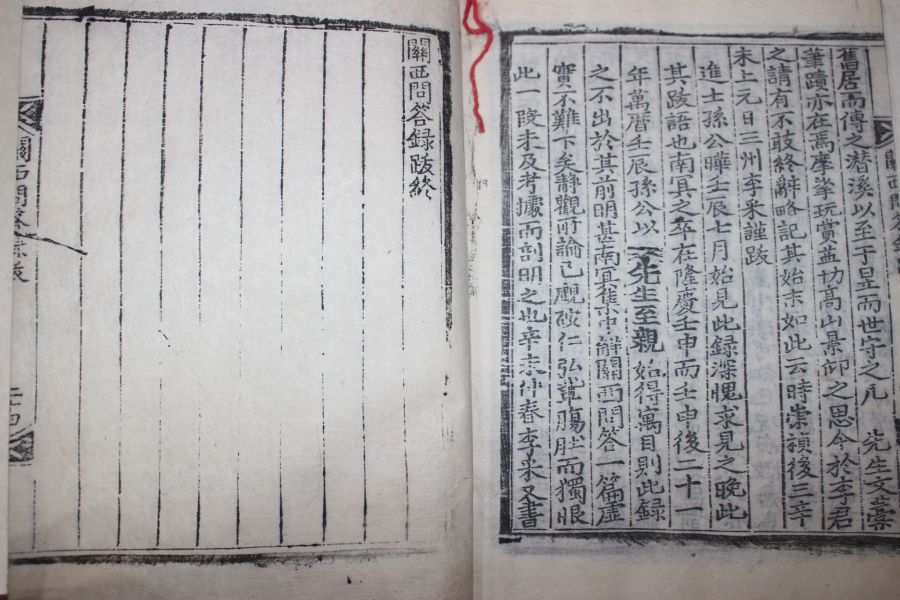 舊居而傳之潛溪以至于昰而世守之凡 先生文藁
筆蹟亦在焉摩挲玩賞益切高山景仰之思今於李君
之請有不敢終辭略記其始末如此云時崇禎後三辛
未上元日三州李采謹跋
進士孫公曄壬辰七月始見此録深愧求見之晚此
其跋語也南冥之卒在隆慶壬申而壬申後二十一
年萬曆壬辰孫公以 先生至親始得寓目則此録
之不出於其前明甚南冥集中解關西問答一篇虛
實不難下矣静觀所論已覷破仁弘輩膓肚而獨恨
此一段未及考據而剖明之也辛未仲春李采又書
關西問答録跋終
關西問答録跋
二十四